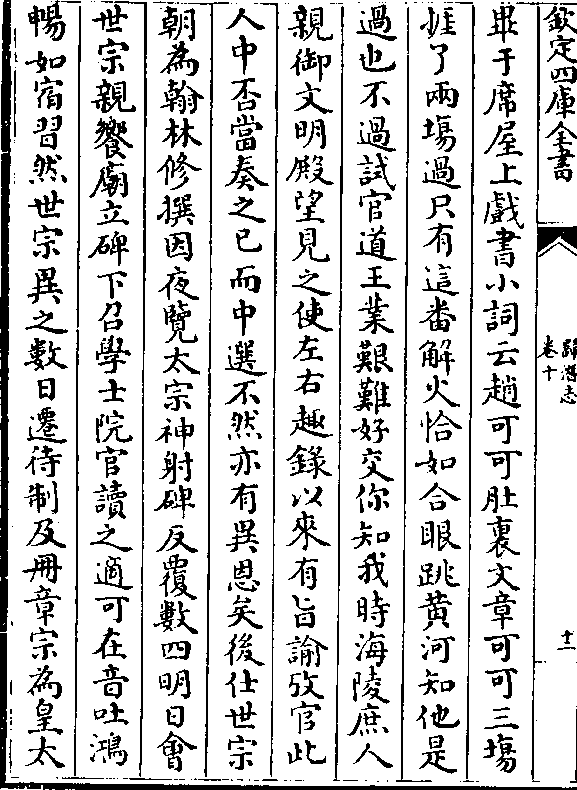 欽定四庫全書
歸潛志
卷十
十一
畢于席屋上戲書小詞云趙可可肚裏文章可可三塲
捱了兩塲過只有這番解火恰如合眼跳黃河知他是
過也不過試官道王業艱難好交你知我時海陵庶人
親御文明殿望見之使左右趣錄以來有旨諭攷官此
人中否當奏之已而中選不然亦有異恩矣後仕世宗
朝為翰林修撰因夜覽太宗神射碑反覆數四明日會
世宗親饗廟立碑下召學士院官讀之適可在音吐鴻
暢如宿習然世宗異之數日遷待制及冊章宗為皇太